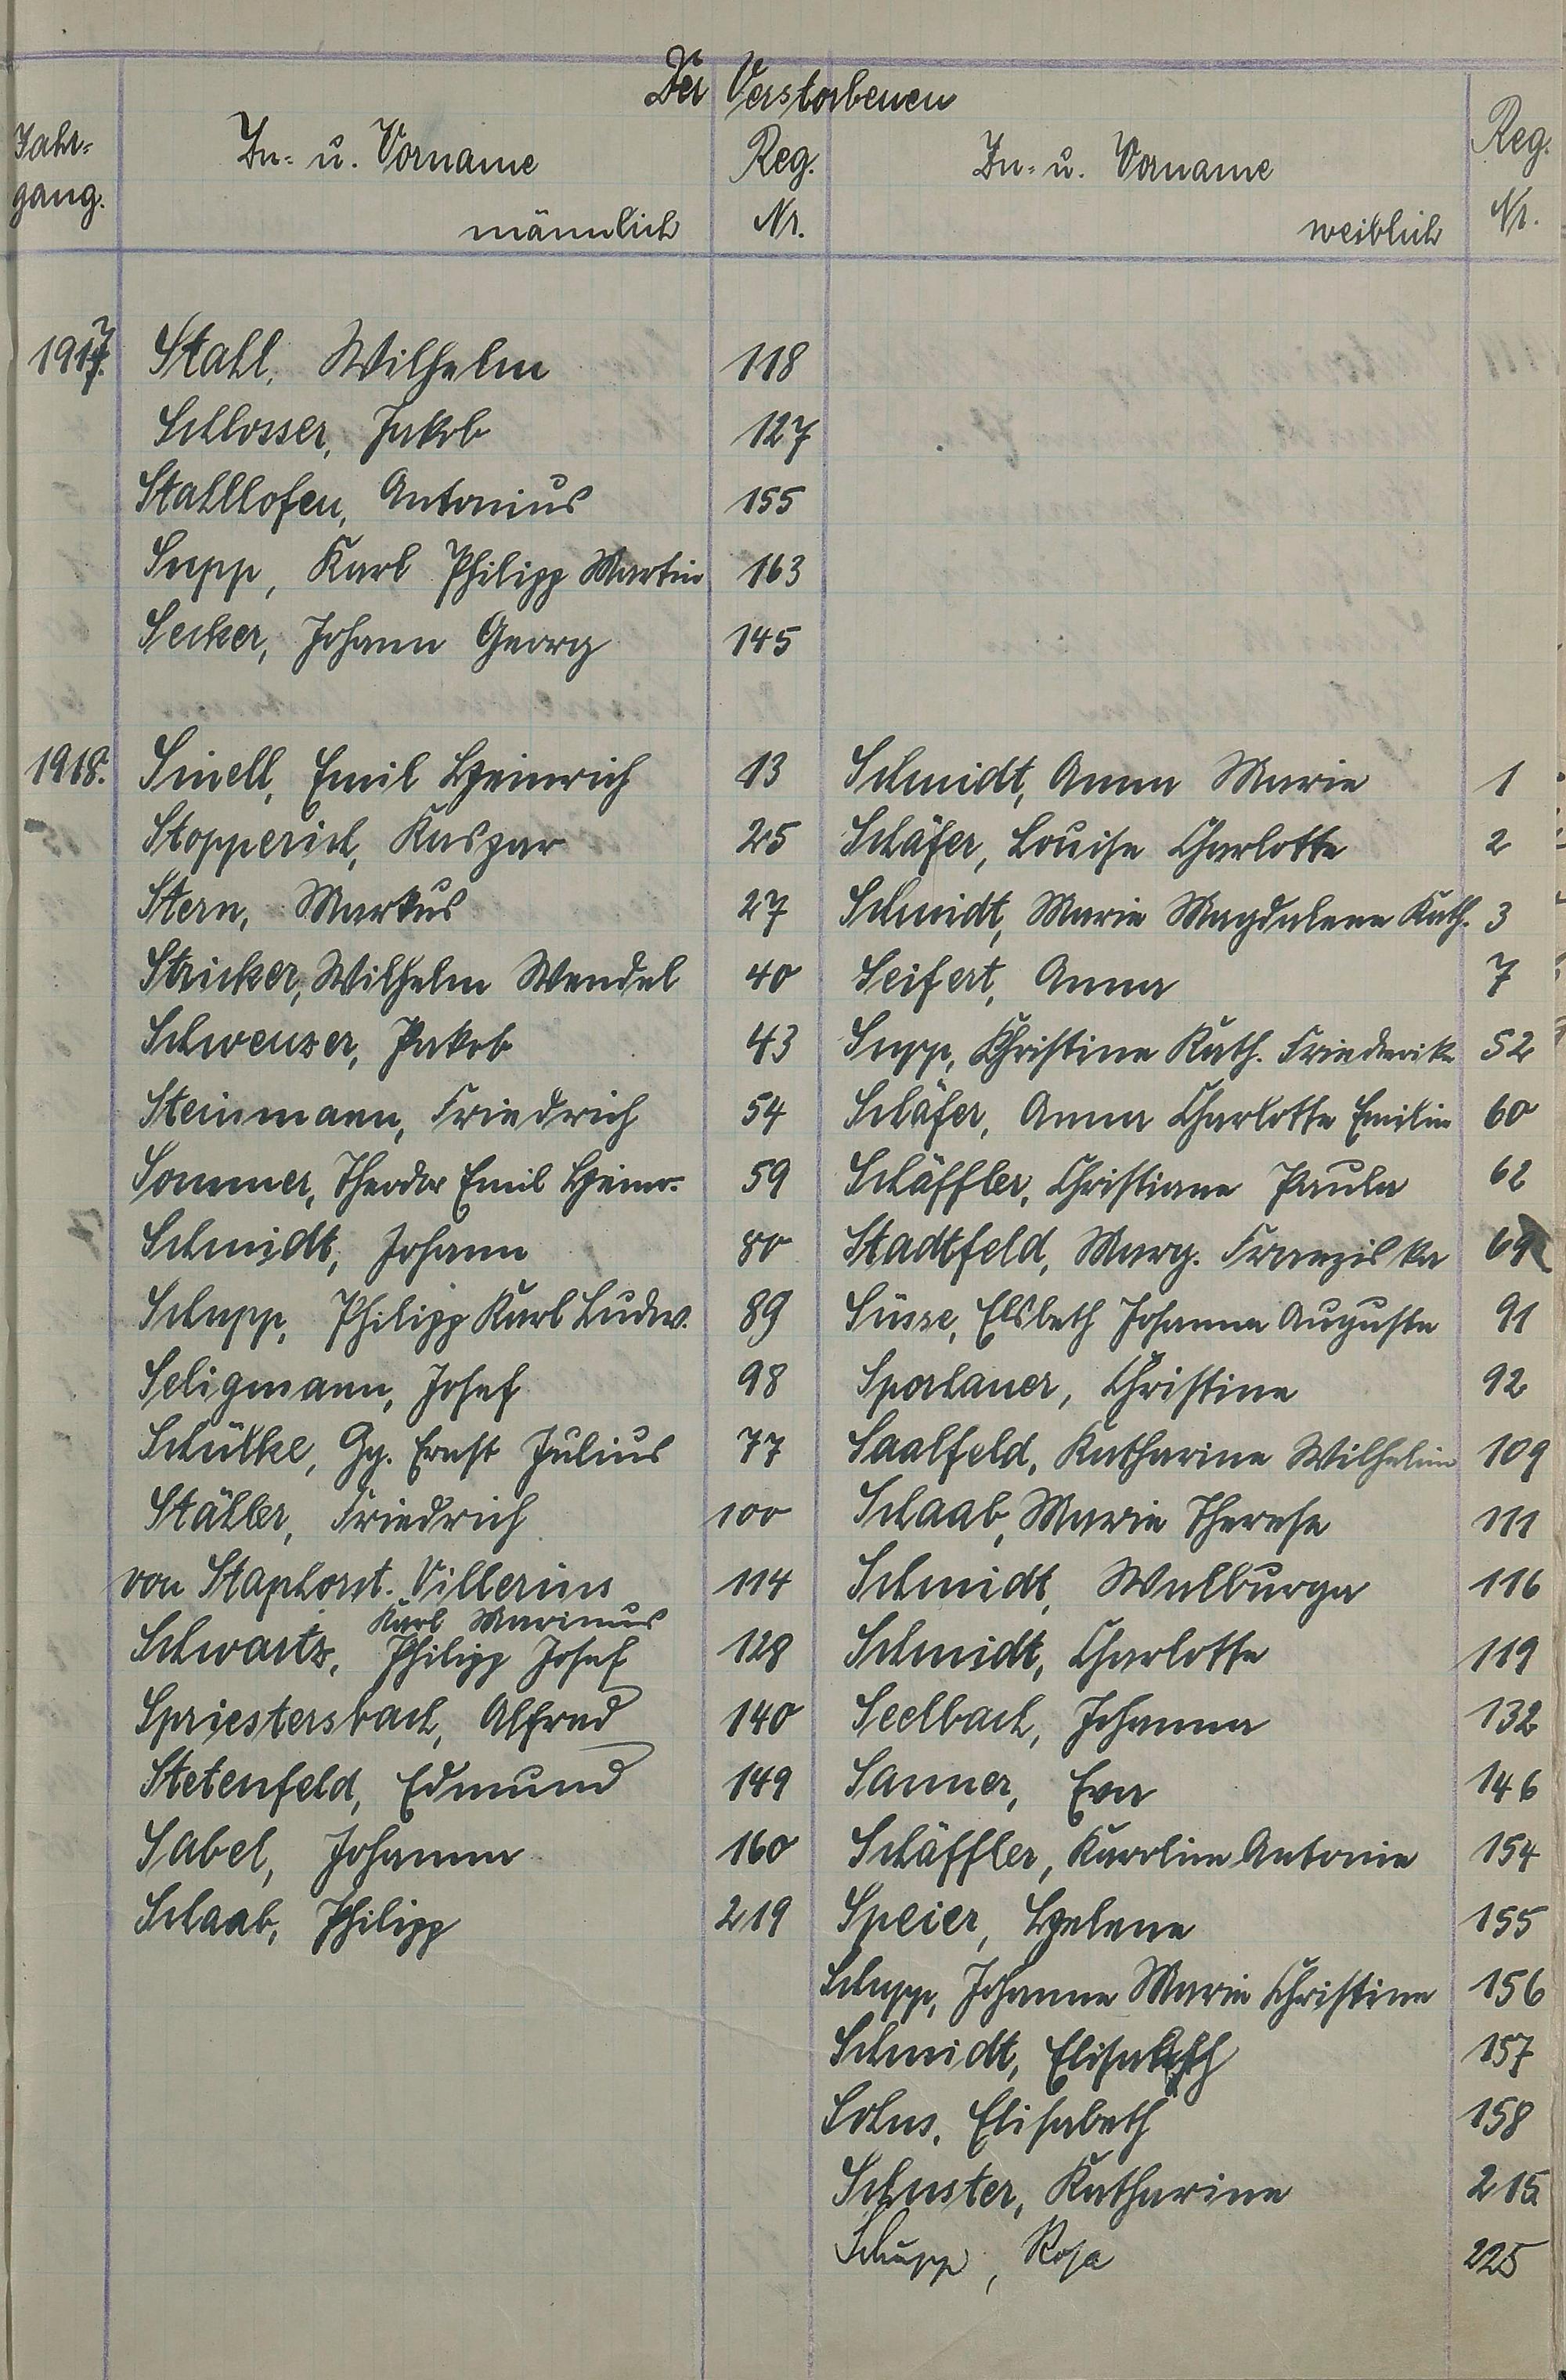 Der Verstorbenen
Jahr-
gang.
Zu- u. Vorname
männlich
Reg.
Nr.
Zu- u. Vorname
weiblich
Reg.
Nr.
1917. Stahl, Wilhelm 118
Schlosser, Jakob 127
Stahlhofen, Antonius 155
Supp, Karl Philipp Martin 163
Secker, Johann Georg 145
1918. Sinell, Emil Heinrich 13 Schmidt, Anna Marie 1
Stopperich, Kaspar 25 Schäfer, Louise Charlotte 2
Stern, Markus 27 Schmidt, Marie Magdalene Kath. 3
Stricker, Wilhelm Wendel 40 Seifert, Anna 7
Schweuser, Jakob 43 Supp, Christine Kath. Friederike 52
Steinmann, Friedrich 54 Schäfer, Anna Charlotte Emilie 60
Sommer, Theodor Emil Heinr. 59 Schäffler, Christiane Paula 62
Schmidt, Johann 80 Stadtfeld, Marg. Franziska
Schupp, Philipp Karl Ludw. 89 Süsse, Elsbeth Johanna Auguste 91
Seligmann, Josef 98 Sporhauer, Christine 92
Schülke, Gg. Ernst Julius 77 Saalfeld, Katharine Wilhelmine 109
Stähler, Friedrich 100 Schaab, Marie Therese 111
von Staphorst. Villerius 114 Schmidt, Walburga 116
Karl Marinus
Schwartz, Philipp Josef 128 Schmidt, Charlotte 119
Spriestersbach, Alfred 140 Seelbach, Johanna 132
Stetenfeld, Edmund 149 Sanner, Eva 146
Sabel, Johann 160 Schäffler, Karoline Antonie 154
Schaab, Philipp 219 Speier, Helene 155
Schupp, Johanne Marie Christine 156
Schmidt, Elisabeth 157
Sohns, Elisabeth 158
Schuster, Katharine 215
Schupp, Rosa 225